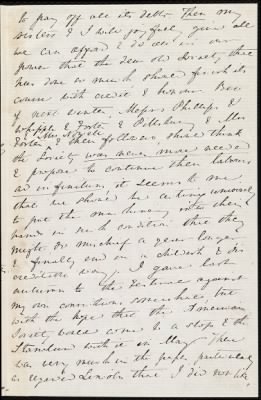 to pay off all its debts. Then my
sisters & I will joyfully give all
we can afford & do all in our
power that the dear old Society that
has done so much should finish its
course with credit & honour. But
if next winter, Messrs Phillips &
Whipple & Foster & Pillsbury & Mrs
Foster & their followers should think
the Society was never more needed
& prepare to continue their labours
ad infinitum, it seems to me
that we should be acting unwisely
to put the machinery into their
hands in such condition that they
might do mischief a year longer
& finally end in a childish & dis
creditable way. I gave last
autumn to the Standard against
my own convictions somewhat, but
with the hope that the American
Society would come to a stop & the
Standard with it in May. There
was very much in the paper particularly
as regards Lincoln that I did not like